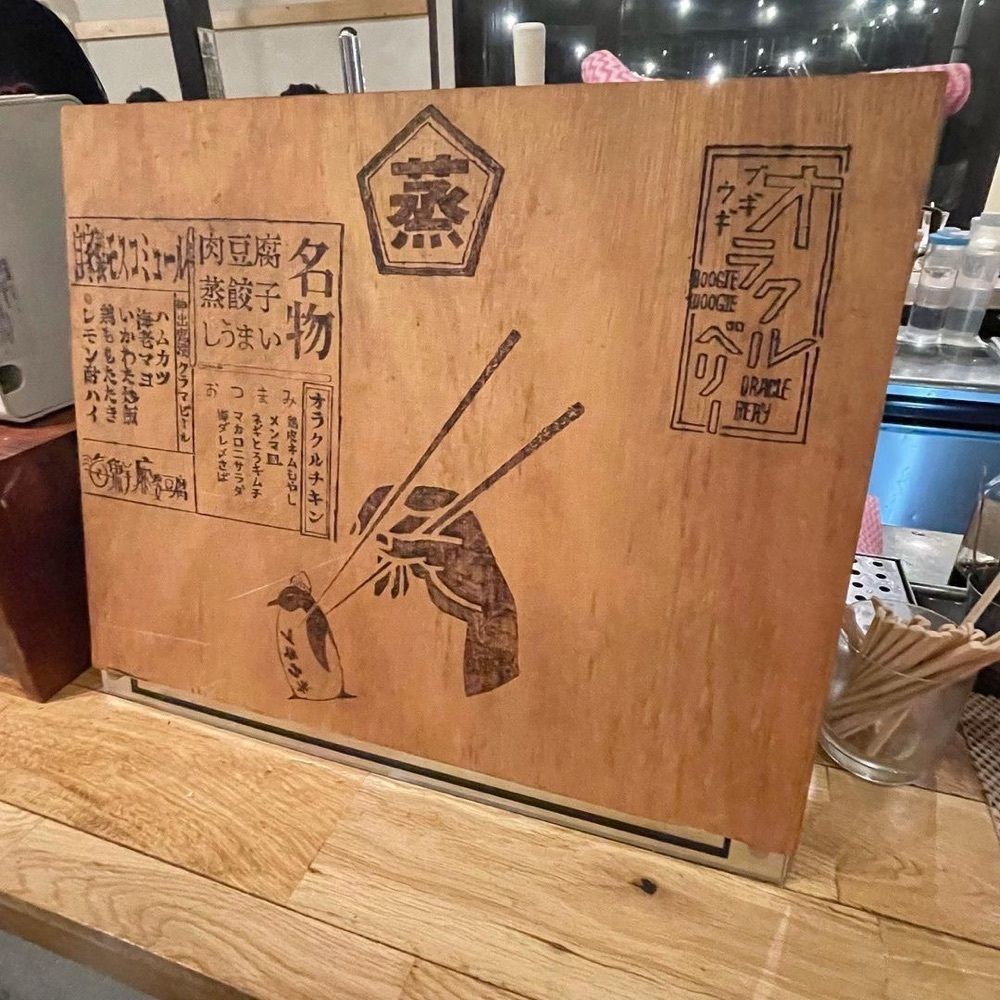 蒸
オラクルベリー
ブギ
ウギ
BOOGIE
WOOGIE
ORACLE
BERY
名物
肉豆腐
蒸餃子
しうまい
自家製モスコミュール
クラマビール
ハムカツ
海老マヨ
いかわた炒飯
鶏ももたたき
レモン酎ハイ
麻婆豆腐
オラクルチキン
おつまみ
鶏皮キムもやし
メンマ皿
ネギとろキムチ
マカロニサラダ